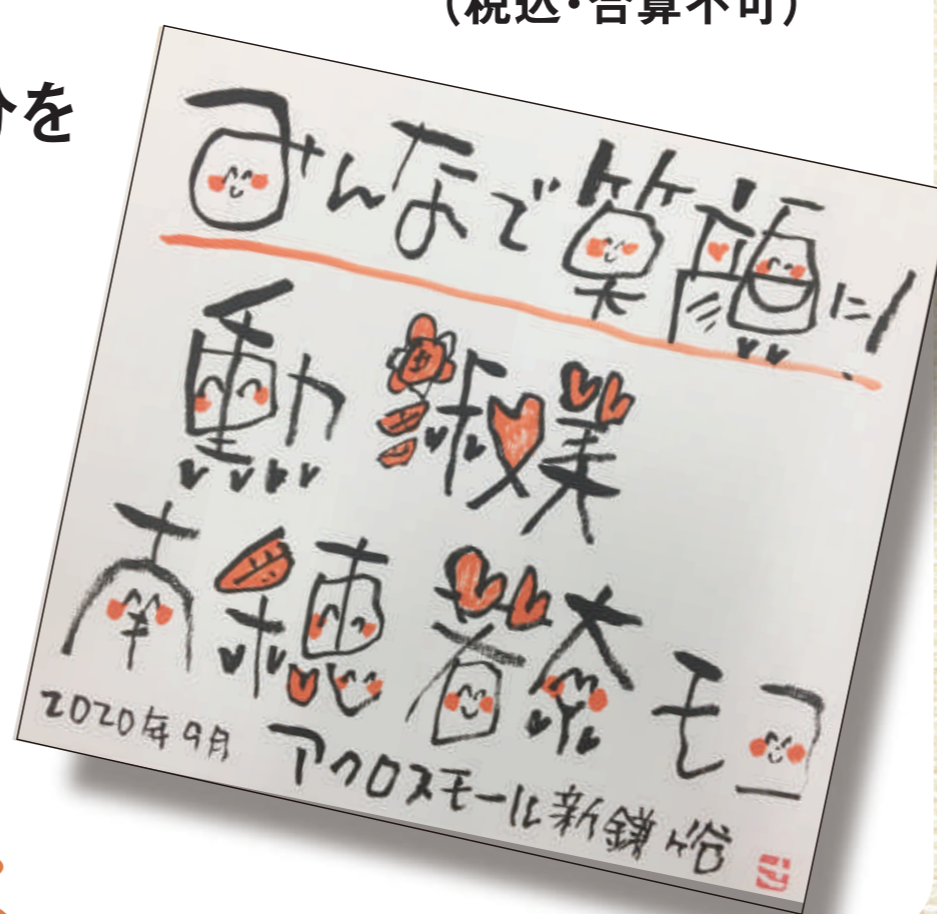 (税込・合算不可)
分を
みんなで笑顔に!
勲 淑美
南穂 若奈 モコ
2020年9月
アクロスモール新鎌ヶ谷